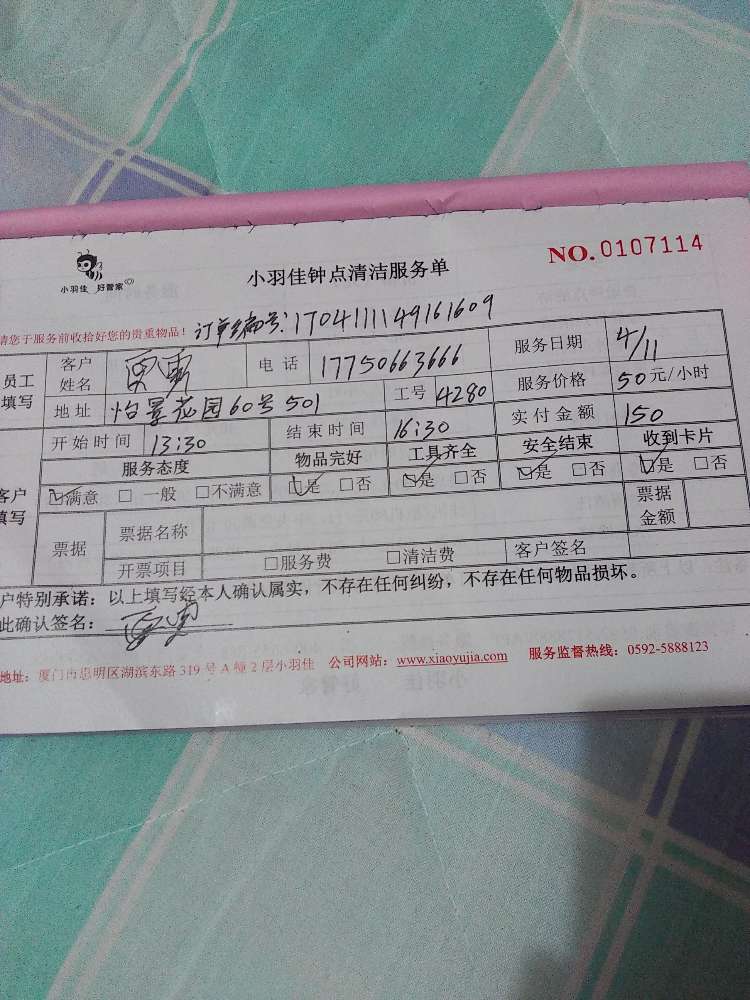 小羽佳 好管家
小羽佳钟点清洁服务单
NO. 0107114
请您于服务前收拾好您的贵重物品！ 订单编号：1704111149161609
员工填写 客户姓名 电话 17750663666 服务日期 4/11
地址 怡景花园60号501 工号 4280 服务价格 50元/小时
客户填写 开始时间 13:30 结束时间 16:30 实付金额 150
服务态度 物品完好 工具齐全 安全结束 收到卡片
☑满意 □一般 □不满意 ☑是 □否 ☑是 □否 ☑是 □否 ☑是 □否
票据 票据名称 票据金额
开票项目 □服务费 □清洁费 客户签名
户特别承诺：以上填写经本人确认属实，不存在任何纠纷，不存在任何物品损坏。
此确认签名：
地址：厦门市思明区湖滨东路319号A幢2层小羽佳 公司网站：www.xiaoyujia.com 服务监督热线：0592-5888123